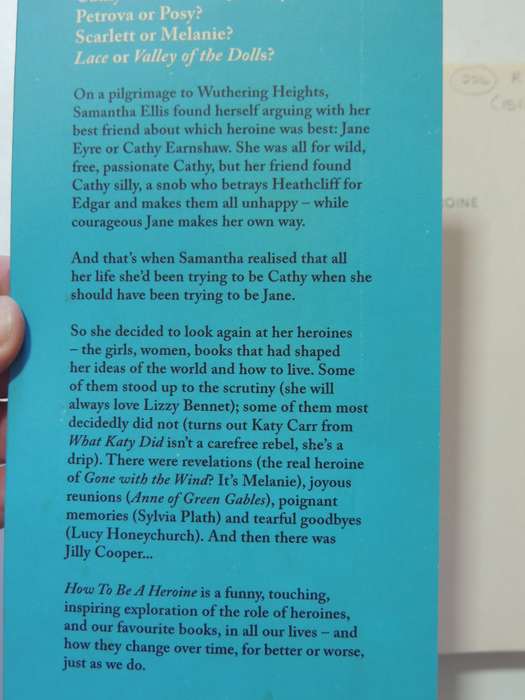 Petrova or Posy?
Scarlett or Melanie?
Lace or Valley of the Dolls?
On a pilgrimage to Wuthering Heights,
Samantha Ellis found herself arguing with her
best friend about which heroine was best: Jane
Eyre or Cathy Earnshaw. She was all for wild,
free, passionate Cathy, but her friend found
Cathy silly, a snob who betrays Heathcliff for
Edgar and makes them all unhappy – while
courageous Jane makes her own way.
And that's when Samantha realised that all
her life she'd been trying to be Cathy when she
should have been trying to be Jane.
So she decided to look again at her heroines
– the girls, women, books that had shaped
her ideas of the world and how to live. Some
of them stood up to the scrutiny (she will
always love Lizzy Bennet); some of them most
decidedly did not (turns out Katy Carr from
What Katy Did isn't a carefree rebel, she's a
drip). There were revelations (the real heroine
of Gone with the Wind? It's Melanie), joyous
reunions (Anne of Green Gables), poignant
memories (Sylvia Plath) and tearful goodbyes
(Lucy Honeychurch). And then there was
Jilly Cooper...
How To Be A Heroine is a funny, touching,
inspiring exploration of the role of heroines,
and our favourite books, in all our lives – and
how they change over time, for better or worse,
just as we do.